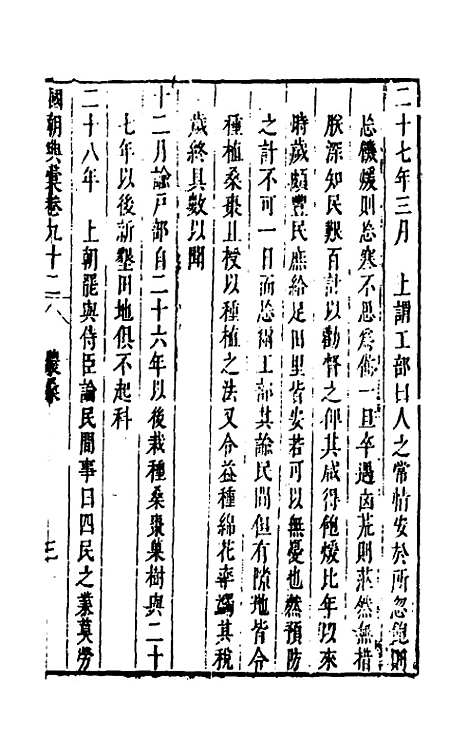 二十七年三月　上謂工部曰人之常情安於所忽飽則
忘饑煖則忘寒不思爲備一旦卒遇凶荒則茫然無措
朕深知民艱百計以勸督之俾其咸得飽煖比年以來
時歲頗豐民庶給足田里皆安若可以無憂也然預防
之計不可一日而忘爾工部其諭民間但有隙地皆令
種植桑棗且授以種植之法又令益種綿花率蠲其稅
歲終具數以聞
十二月諭戶部自二十六年以後栽種桑棗菓樹與二十
七年以後新墾田地俱不起科
二十八年　上朝罷與侍臣論民間事曰四民之業莫勞
國朝典彙卷九十二　農桑　三